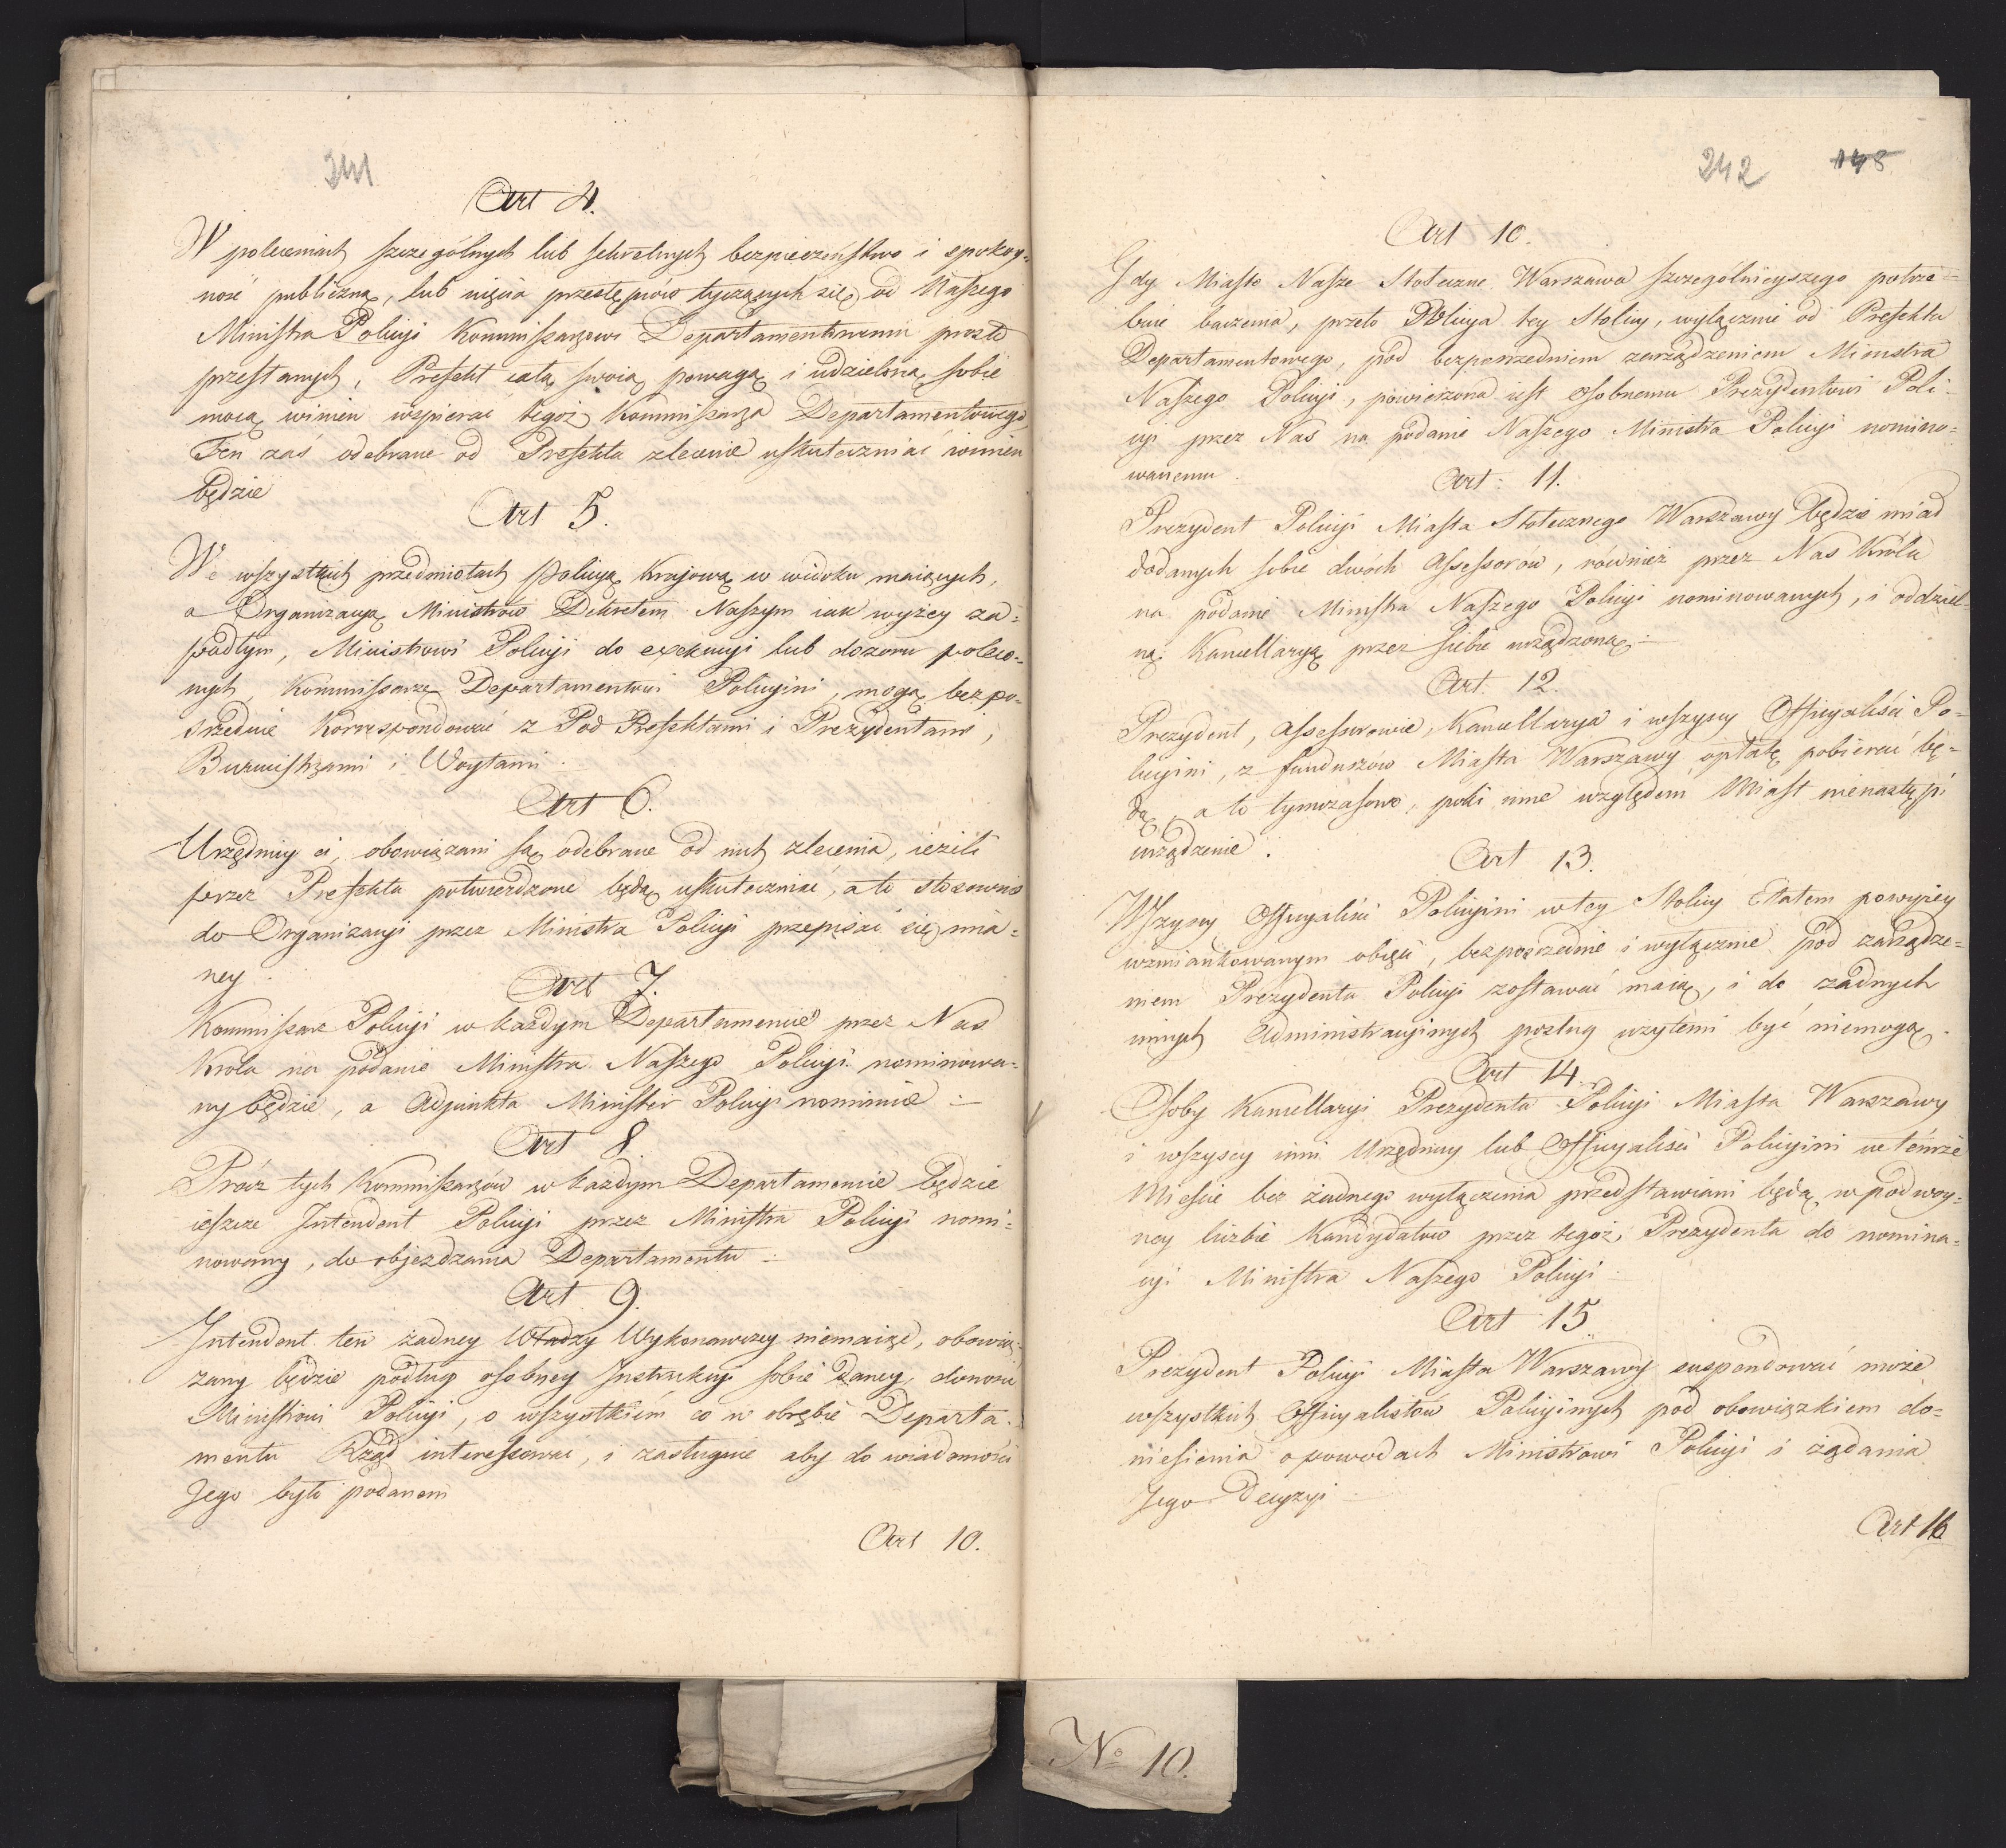 241
Art 4.
W poleceniach szczególnych lub sekretnych bezpieczeństwo i spokoy=
ność publiczną, lub ujęcia przestępców tyczących się, od Naszego
Ministra Policyi Kommissarzowi Departamentowemu prosto
przesłanych, Prefekt całą swoią powagą i udzieloną sobie
mocą winien wspierać tegoż Kommissarza Departamentowego
Ten zaś odebrane od Prefekta zlecenie uskuteczniać winien
będzie
Art 5.
We wszystkich przedmiotach Policyą Kraiową w widoku maiących,
a Organizacyą Ministrów Dekretem Naszym iak wyżey za=
padłym, Ministrowi Policyi do exekucyi lub dozoru poleco=
nych, Kommissarze Departamentowi Policyini, mogą bezpo=
srzednie Korrespondować z Pod Prefektami i Prezydentami,
Burmistrzami i Woytami.
Art 6.
Urzędnicy ci, obowiązani są odebrane od nich zlecenia, ieżeli
przez Prefekta potwierdzone będą uskuteczniać, a to stosownie
do Organizacyi przez Ministra Policyi przepisać się mia=
ney.
Art 7.
Kommissarz Policyi w każdym Departamencie przez Nas
Króla na podanie Ministra Naszego Policyi nominowa=
ny będzie, a Adjunkta Minister Policyi nominuie.
Art 8
Prócz tych Kommissarzów w każdym Departamencie będzie
ieszcze Intendent Policyi przez Ministra Policyi nomi=
nowany, do objezdzania Departamentu.
Art 9.
Intendent ten żadney Władzy Wykonawczey niemaiąc, obowią=
zany będzie podług osobney Instrukcyi sobie daney, donosić
Ministrowi Policyi, o wszystkiém co w obrębie Departa=
mentu Rząd interessować, i zasługuie aby do wiadomości
Jego było podanem
Art 10.
242 148
Art 10.
Gdy Miasto Nasze Stołeczne Warszawa szczególnieyszego potrze=
buie baczenia, przeto Policya tey Stolicy, wyłącznie od Prefekta
Departamentowego, pod bezposrzedniem zarządzeniem Ministra
Naszego Policyi, powierzona iest osobnemu Prezydentowi Poli=
cyi przez Nas na podanie Naszego Ministra Policyi nomino=
wanemu.
Art: 11.
Prezydent Policyi Miasta Stołecznego Warszawy będzie miał
dodanych sobie dwóch Assessorów, również przez Nas Króla
na podanie Ministra Naszego Policyi nominowanych, i oddziel=
ną Kancellaryą przez siebie urządzoną.
Art. 12.
Prezydent, Assessorowie, Kancellarya i wszyscy Officyaliści Po=
licyini, z funduszów Miasta Warszawy opłatę pobierać bę=
dą, a to tymczasowo, póki inne względem Miast nienastąpi
urządzenie.
Art 13.
Wszyscy Officyaliści Policyini w tey Stolicy Etatem powyżey
wzmiankowanym obięci, bezposrzednie i wyłącznie pod zarządze=
niem Prezydenta Policyi zostawać maią, i do żadnych
innych Administracyinych posług użytemi być niemogą.
Art 14.
Osoby Kancellaryi Prezydenta Policyi Miasta Warszawy
i wszyscy inni Urzędnicy lub Officyaliści Policyini w témże
Mieście bez żadnego wyłączenia przedstawiani będą w podwoy=
ney liczbie Kandydatów przez tegoż Prezydenta do nomina=
cyi Ministra Naszego Policyi
Art 15
Prezydent Policyi Miasta Warszawy suspendować może
wszystkich Officyalistów Policyinych pod obowiązkiem do=
niesienia o powodach Ministrowi Policyi i żądania
Jego Decyzyi
Art 16
No 10.